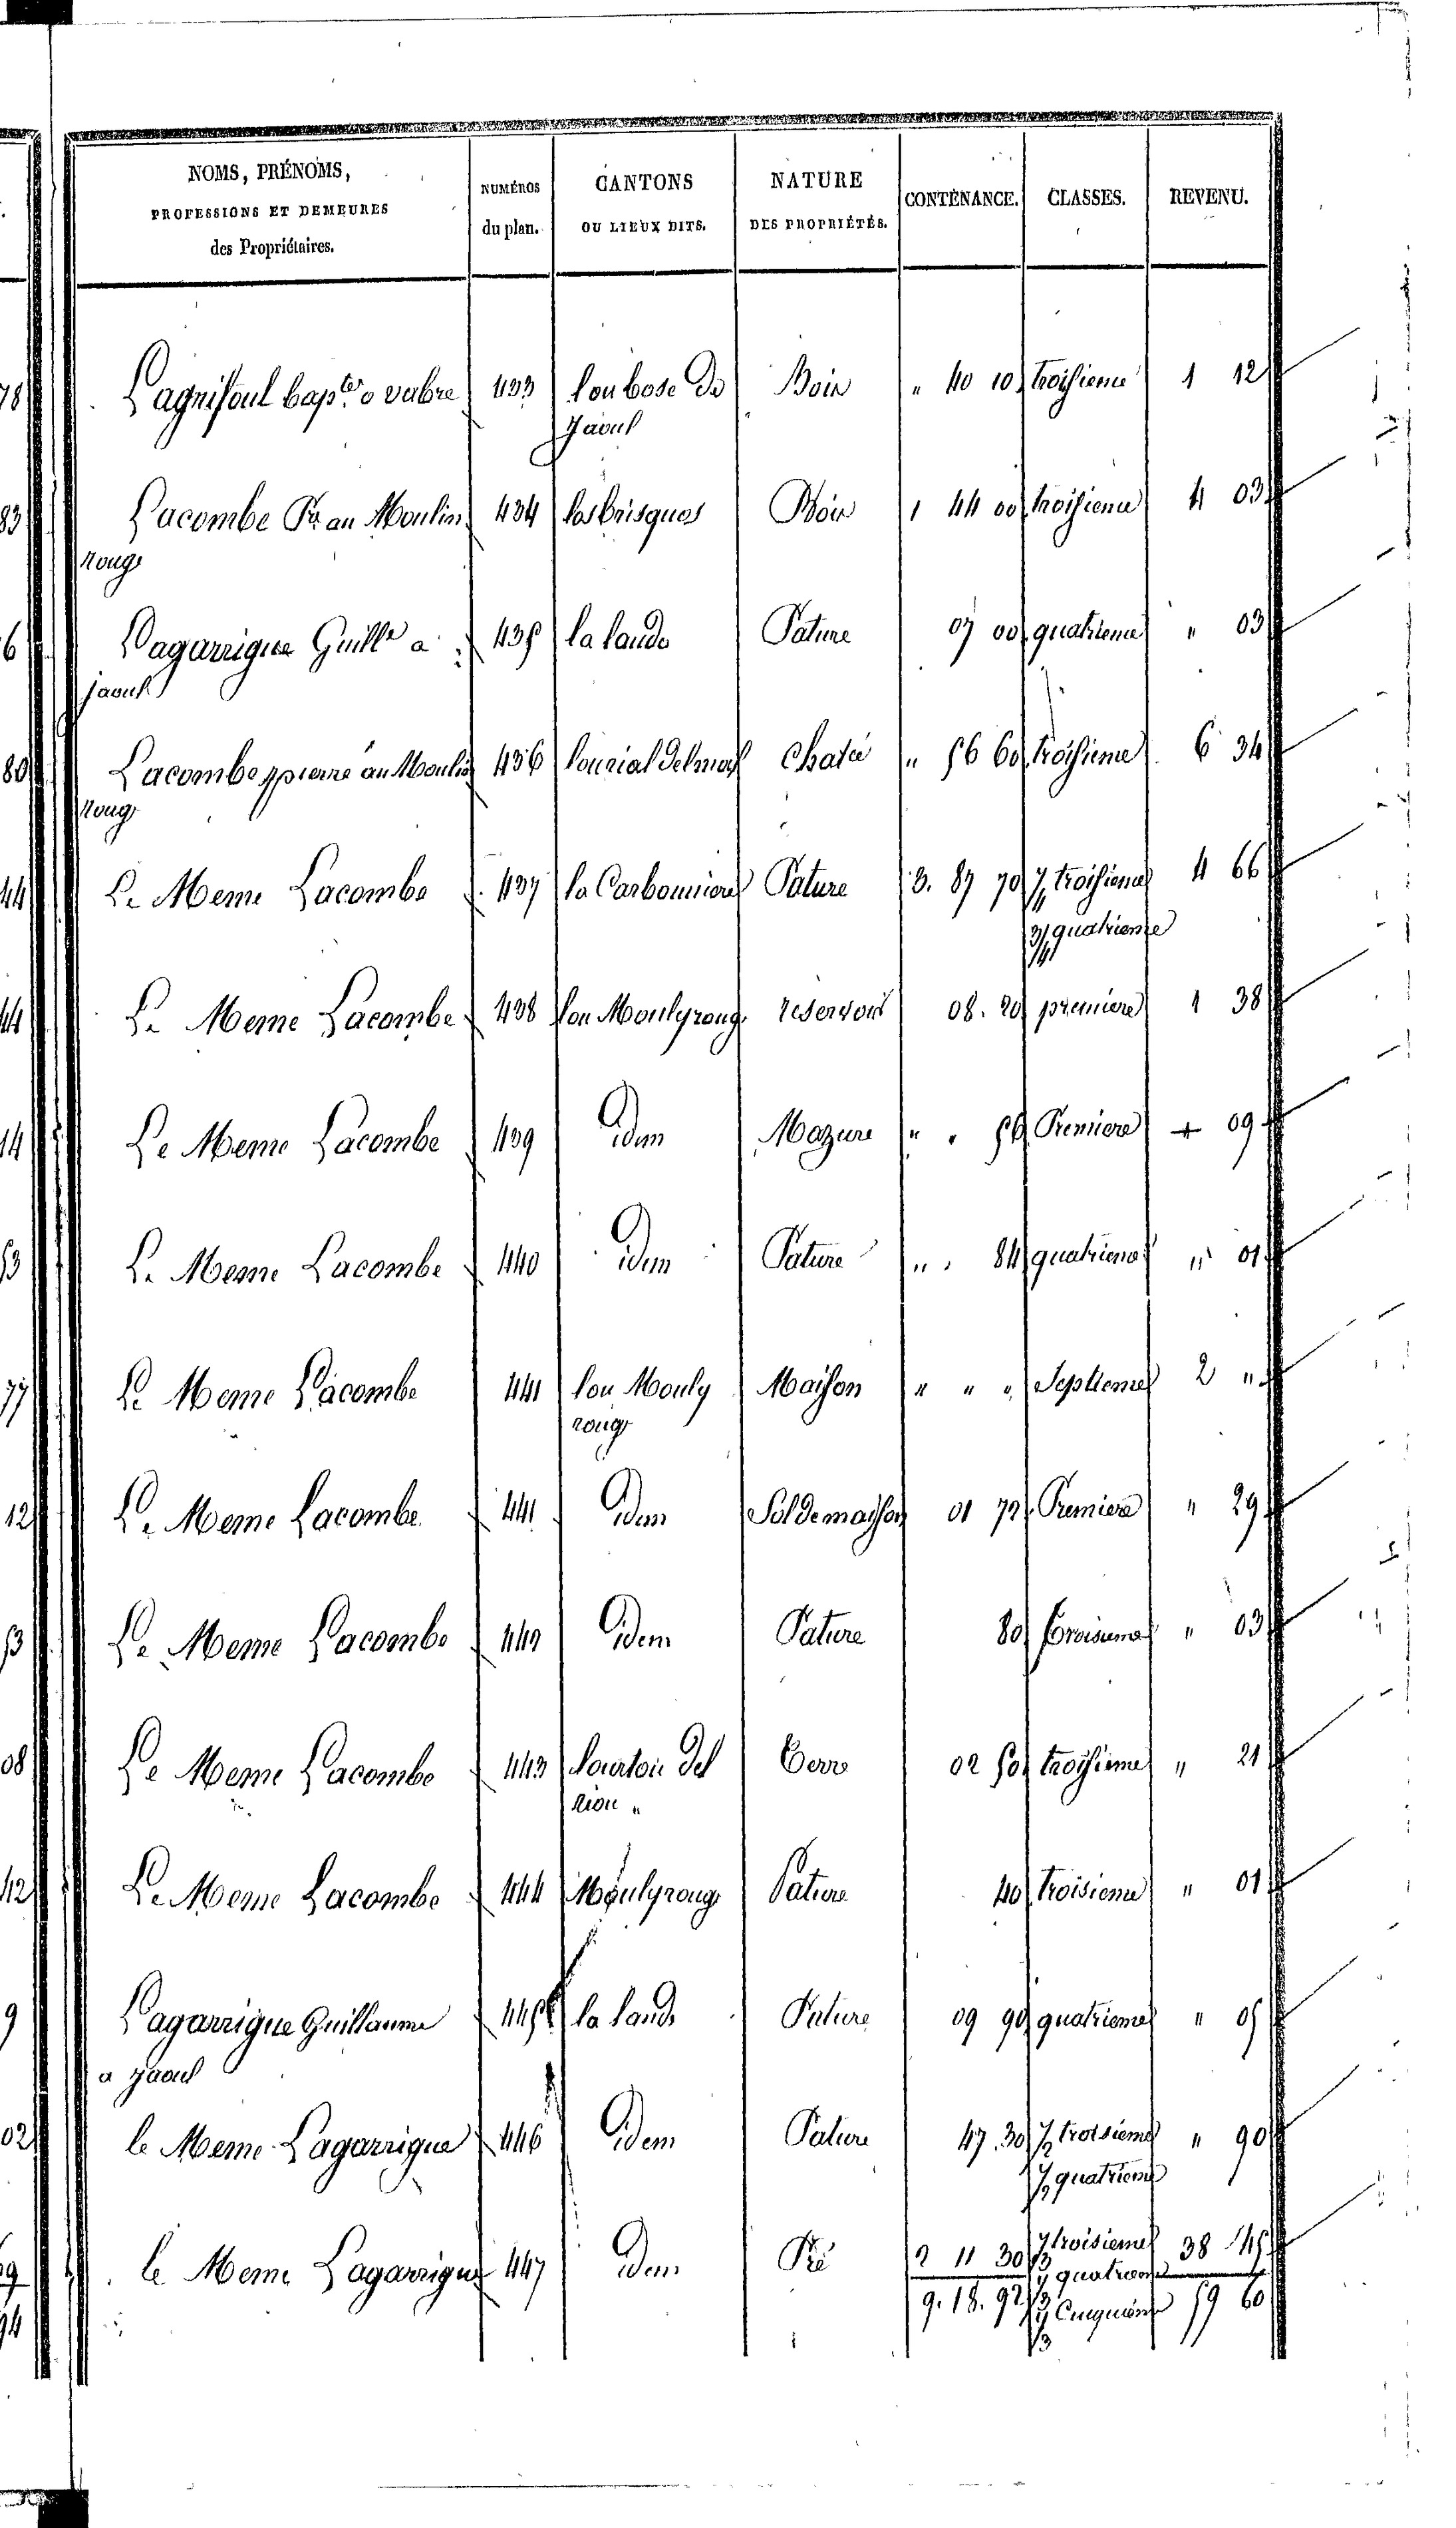 NOMS, PRÉNOMS,
PROFESSIONS ET DEMEURES
des Propriétaires.
NUMÉROS
du plan.
CANTONS
OU LIEUX DITS.
NATURE
DES PROPRIÉTÉS.
CONTENANCE.
CLASSES.
REVENU.
433 lou bosc de Bois " 40 10 troisieme 1 12
jaoul
Lacombe Pre au Moulin 434 las brisques Bois 1 44 00 troisieme 4 03
rouge
Lagarrigue Guille a 435 la lande Pature 07 00 quatrieme " 03
jaoul
Lacombe pierre au Moulin 436 lou rial delmas " 56 60 troisieme 6 34
rouge
Le Meme Lacombe 437 la Carbonniere Pature 3. 87 70 1/4 troisieme 4 66
3/4 quatrieme
Le Meme Lacombe 438 lou Moulyrouge reservoir 08. 20 premiere 1 38
Le Meme Lacombe 439 idem Mazure " " 56 Premiere + 09
Le Meme Lacombe 440 idem Pature " " 84 quatrieme " 01
Le Meme Lacombe 441 lou Mouly Maison " " " Septieme 2 "
rouge
Le Meme Lacombe 441 idem Sol de maison 01 72 Premiere " 29
Le Meme Lacombe 442 idem Pature 80 troisieme " 03
Le Meme Lacombe 443 lourtou del Terre 02 50 troisieme " 21
riou "
Le Meme Lacombe 444 Moulyrouge Pature 40 troisieme " 01
Lagarrigue Guillaume 445 la lande Pature 09 90 quatrieme " 05
a jaoul
le Meme Lagarrigue 446 idem Pature 47.30 1/2 troisieme " 90
1/2 quatrieme
le Meme Lagarrigue 447 idem Pré 2 11 30 1/3 troisieme 38 45
1/3 quatrieme
9. 18. 92 1/3 Cinquieme 59 60